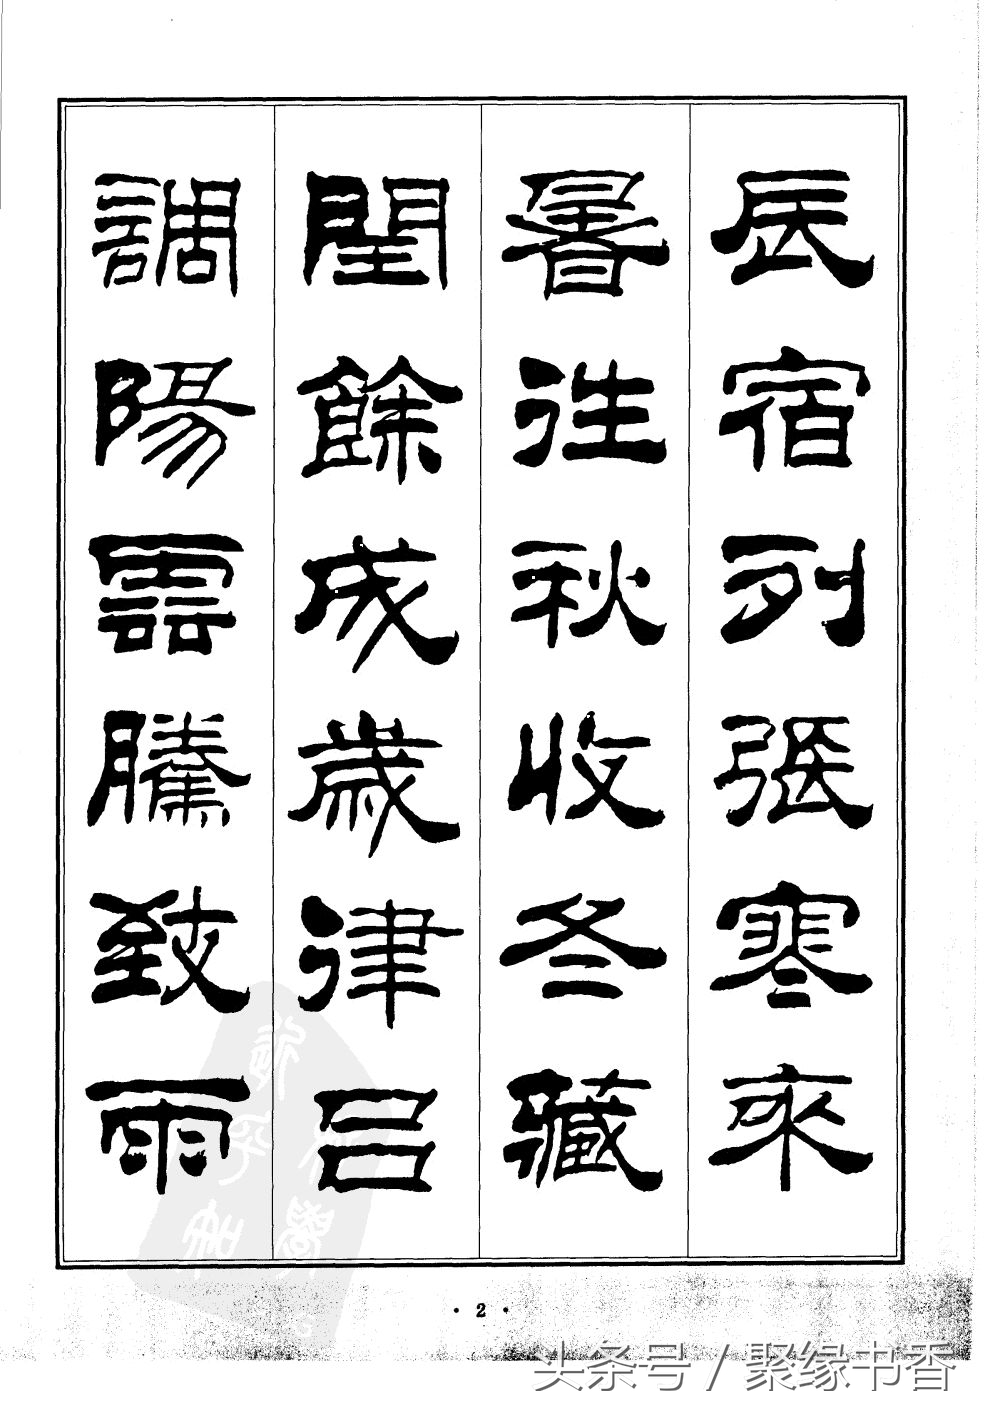 辰宿列張寒來
暑往秋收冬藏
閏餘成歲律呂
調陽雲騰致雨
· 2 ·
头条号 / 聚缘书香